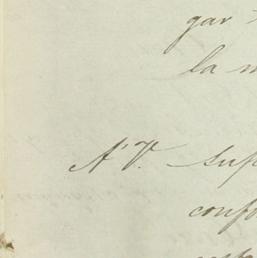 gar
la
A V. sup
conf